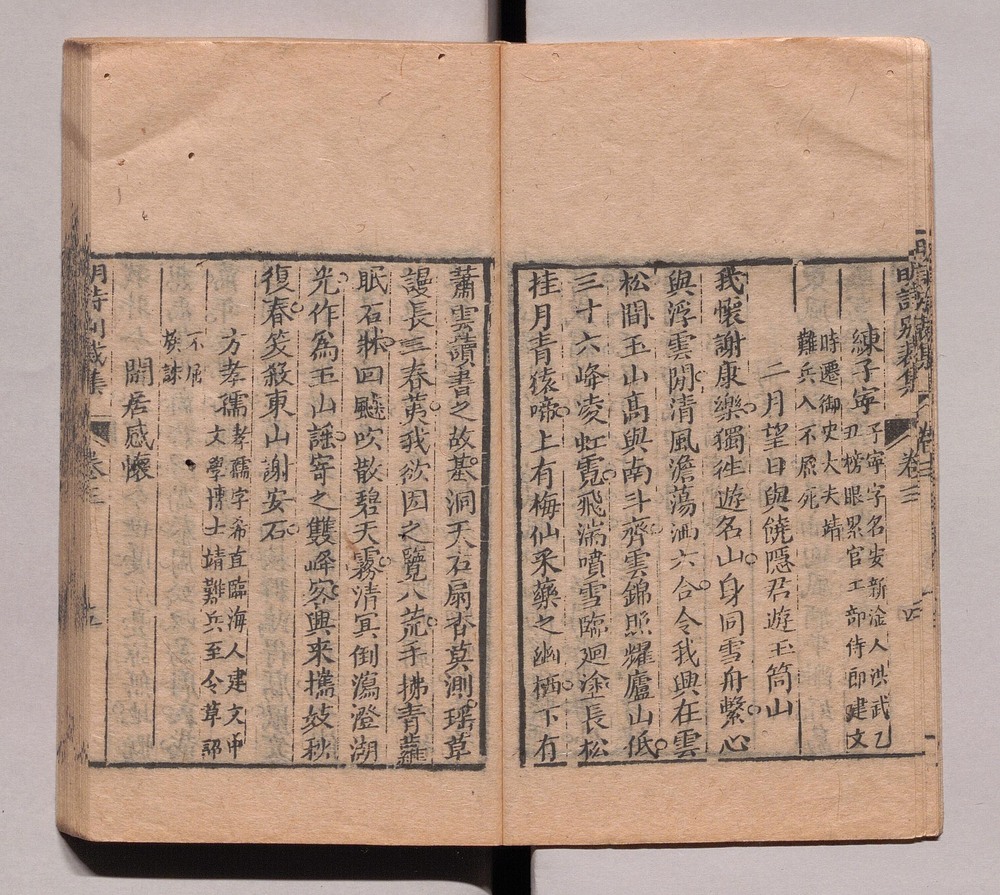 明詩別裁集 卷三 四
練子寧 子寧字名安新淦人洪武乙
丑榜眼累官工部侍郎建文
時遷御史大夫靖
難兵入不屈死
二月望日與饒隱君遊玉筒山
我懷謝康樂獨往遊名山身同雪舟繫心
與浮雲閒清風澹蕩洒六合令我興在雲
松間玉山高與南斗齊雲錦照耀廬山低
三十六峰凌虹霓飛湍噴雪臨迴淦長松
桂月青猿啼上有梅仙采藥之幽栖下有
蕭雲讀書之故基洞天石扃杳莫測瑤草
謾長三春荑我欲因之覽八荒手拂青蘿
眠石牀四飇吹散碧天霧清冥倒瀉澄湖
光作為玉山謠寄之雙峰客興來攜妓秋
復春笑殺東山謝安石
方孝孺 孝孺字希直臨海人建文中
文學博士靖難兵至令草詔
不屈
族誅
閒居感懷
卷三